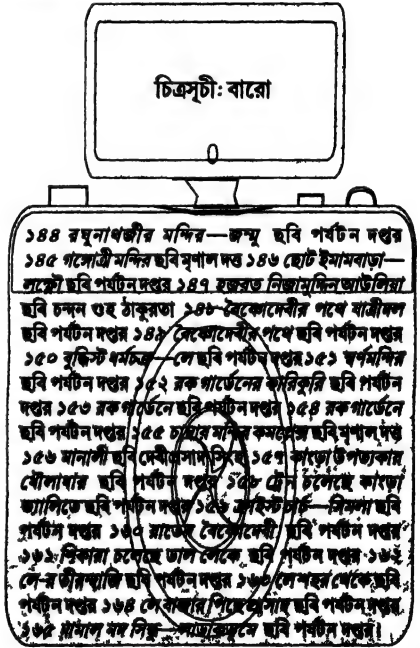 চিত্রসূচী: বারো
১৪৪ রঘুনাথজীর মন্দির—জম্মু ছবি পর্যটন দপ্তর
১৪৫ গঙ্গোত্রী মন্দির ছবি মৃণাল দত্ত ১৪৬ ছোট ইমামবাড়া—
লক্ষ্ণৌ ছবি পর্যটন দপ্তর ১৪৭ হজরত নিজামুদ্দিন আউলিয়া
ছবি চন্দন গুহ ঠাকুরতা ১৪৮ বৈষ্ণোদেবীর পথে যাত্রীদল
ছবি পর্যটন দপ্তর ১৪৯ বৈষ্ণোদেবীর পথে ছবি পর্যটন দপ্তর
১৫০ বুদ্ধিস্ট ধর্মচক্র—লে ছবি পর্যটন দপ্তর ১৫১ স্বর্ণমন্দির
ছবি পর্যটন দপ্তর ১৫২ রক গার্ডেনের কারিকুরি ছবি পর্যটন
দপ্তর ১৫৩ রক গার্ডেনে ছবি পর্যটন দপ্তর ১৫৪ রক গার্ডেনে
ছবি পর্যটন দপ্তর ১৫৫ চাম্বার মন্দির কমপ্লেক্স ছবি মৃণাল দত্ত
১৫৬ মানালী ছবি দেবীপ্রসাদ সিংহ ১৫৭ কাংড়া উপত্যকার
ধৌলাধার ছবি পর্যটন দপ্তর ১৫৮ ট্রেন চলেছে কাংড়া
ভ্যালিতে ছবি পর্যটন দপ্তর ১৫৯ ক্রাইস্ট চার্চ—সিমলা ছবি
পর্যটন দপ্তর ১৬০ রাতের বৈষ্ণোদেবী ছবি পর্যটন দপ্তর
১৬১ শিকারা চলেছে ডাল লেকে ছবি পর্যটন দপ্তর ১৬২
লে-র তীরন্দাজি ছবি পর্যটন দপ্তর ১৬৩ লে শহর থেকে ছবি
পর্যটন দপ্তর ১৬৪ লে বাজার পিছে প্রাসাদ ছবি পর্যটন দপ্তর
১৬৫ ছবি পর্যটন দপ্তর।